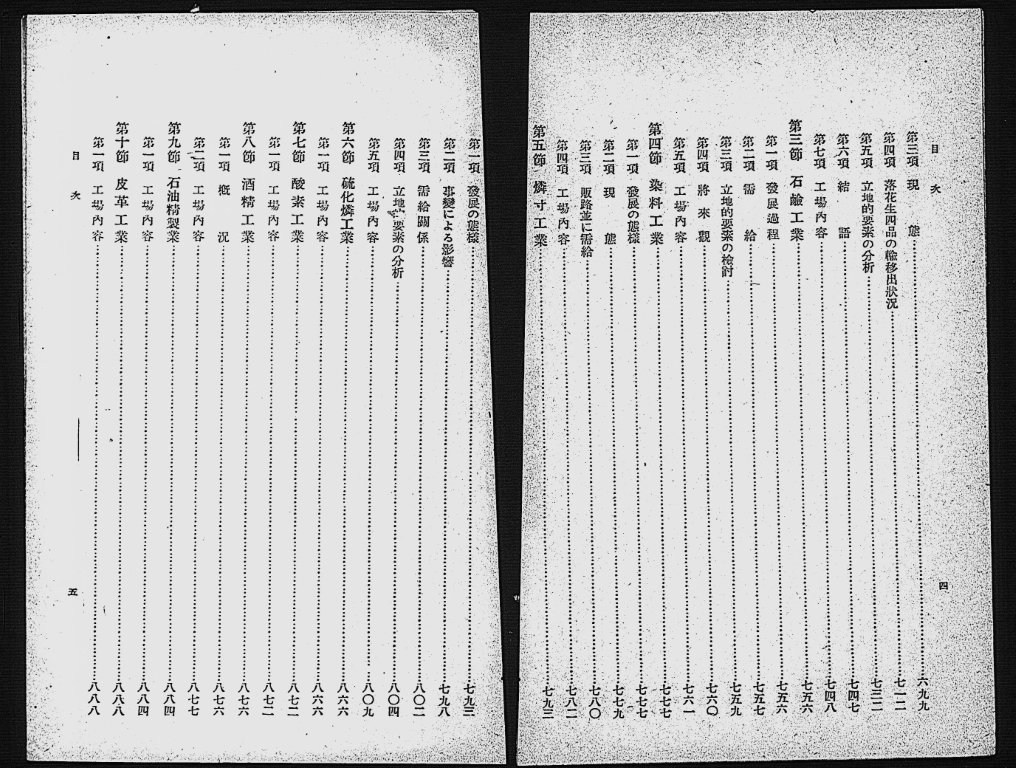 目次
第三項 現態……六九九
第四項 落花生四品の輸移出狀況……七一二
第五項 立地的要素の分析……七三二
第六項 結語……七四七
第七項 工場內容……七四八
第三節 石鹼工業……七五六
第一項 發展過程……七五六
第二項 需給……七五七
第三項 立地的要素の檢討……七五九
第四項 將來觀……七六〇
第五項 工場內容……七六一
第四節 染料工業……七七七
第一項 發展の態樣……七七七
第二項 現態……七七九
第三項 販路並に需給……七八〇
第四項 工場內容……七八二
第五節 燐寸工業……七九三
四
第一項 發展の態樣……七九三
第二項 事變による影響……七九八
第三項 需給關係……八〇二
第四項 立地的要素の分析……八〇四
第五項 工場內容……八〇九
第六節 硫化燐工業……八六六
第一項 工場內容……八六六
第七節 酸素工業……八七二
第一項 工場內容……八七二
第八節 酒精工業……八七六
第一項 槪況……八七六
第二項 工場內容……八七七
第九節 石油精製業……八八四
第一項 工場內容……八八四
第十節 皮革工業……八八八
第一項 工場內容……八八八
目次
五